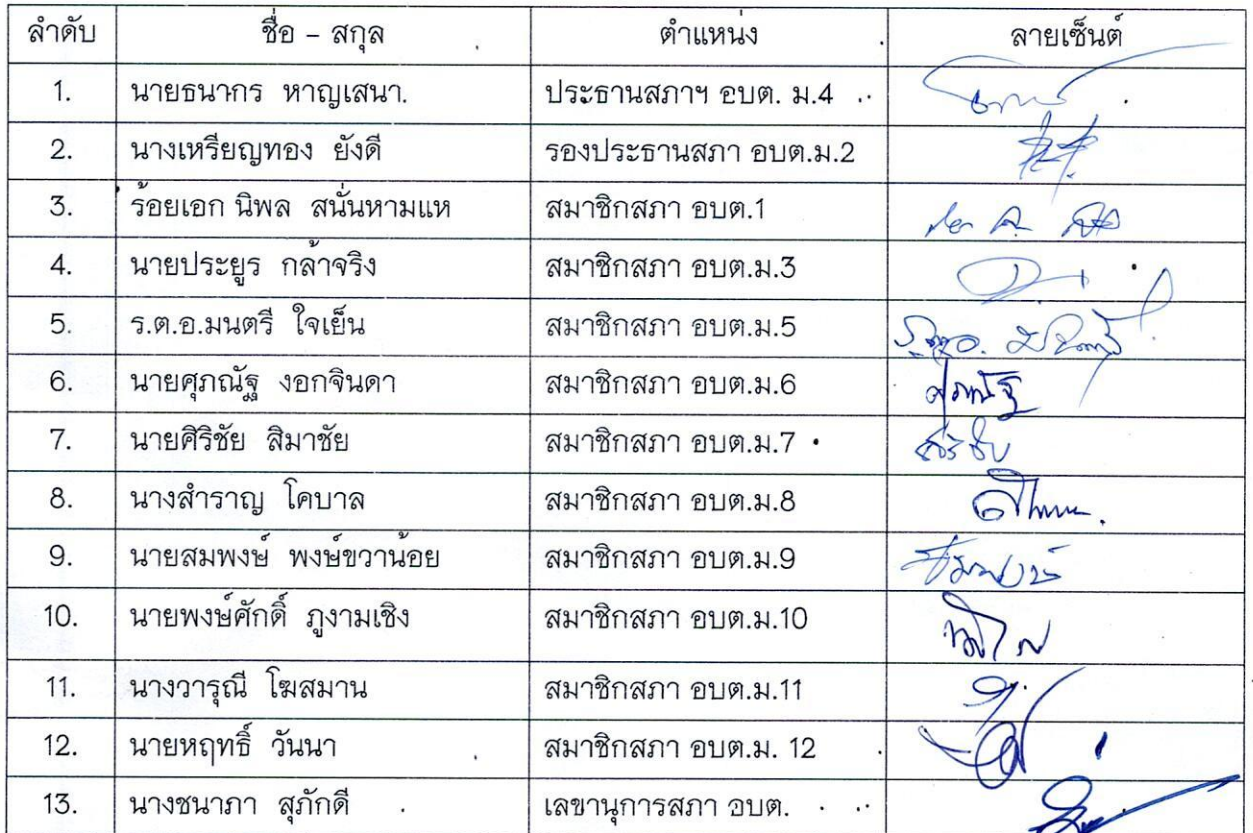 ลำดับ ชื่อ - สกุล ตำแหน่ง ลายเซ็นต์
1. นายธนากร หาญเสนา. ประธานสภาฯ อบต. ม.4
2. นางเหรียญทอง ยังดี รองประธานสภา อบต.ม.2
3. ร้อยเอก นิพล สนั่นหามแห สมาชิกสภา อบต.1
4. นายประยูร กล้าจริง สมาชิกสภา อบต.ม.3
5. ร.ต.อ.มนตรี ใจเย็น สมาชิกสภา อบต.ม.5
6. นายศุภณัฐ งอกจินดา สมาชิกสภา อบต.ม.6 ศุภณัฐ
7. นายศิริชัย สิมาชัย สมาชิกสภา อบต.ม.7
8. นางสำราญ โคบาล สมาชิกสภา อบต.ม.8
9. นายสมพงษ์ พงษ์ขวาน้อย สมาชิกสภา อบต.ม.9
10. นายพงษ์ศักดิ์ ภูงามเชิง สมาชิกสภา อบต.ม.10
11. นางวารุณี โฆสมาน สมาชิกสภา อบต.ม.11
12. นายหฤทธิ์ วันนา สมาชิกสภา อบต.ม. 12
13. นางชนาภา สุภักดี เลขานุการสภา อบต.